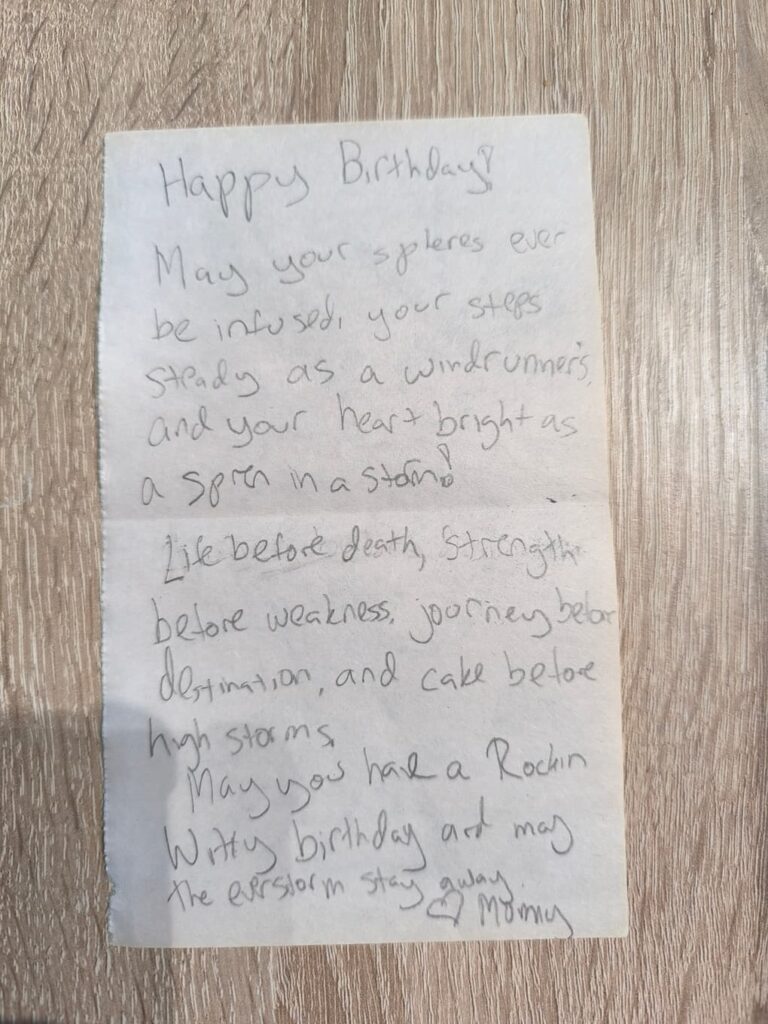 Happy Birthday!
May your spheres ever
be infused, your steps
steady as a windrunner's,
and your heart bright as
a spren in a storm!
Life before death, strength
before weakness, journey before
destination, and cake before
high storms.
May you have a Rockin
Witty birthday and may
the everstorm stay away.
♡ Mommy